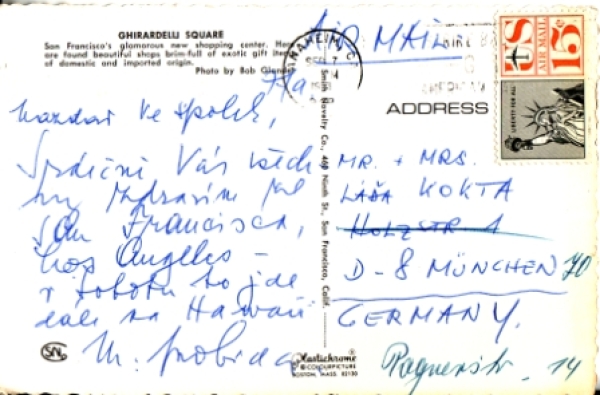 GHIRARDELLI SQUARE
San Francisco's glamorous new shopping center. Here
are found beautiful shops brim-full of exotic gift items
of domestic and imported origin.
Photo by Bob
AIR MAIL
ANAHEIM, C
US AIR MAIL 15¢
LIBERTY FOR ALL
Ha
nazdar ve spolek,
Srdečně Vás všech
ny pozdravujeme ze
San Francisca,
Los Angeles –
v sobotu to jde
dále na Hawaii
M. Svoboda
Smith Novelty Co., 460 Ninth St., San Francisco, Calif.
ADDRESS
MR. + MRS.
LÁĎA KOKTA
HOLZSTR 1
D-8 MÜNCHEN 70
GERMANY.
Ragnerstr. 14
SNC
Plastichrome
® COLOURPICTURE
BOSTON, MASS. 02130